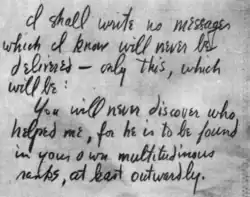 I shall write no messages
which I know will never be
delivered – only this, which
will be:
You will never discover who
helped me, for he is to be found
in your own multitudinous
ranks, at least outwardly.